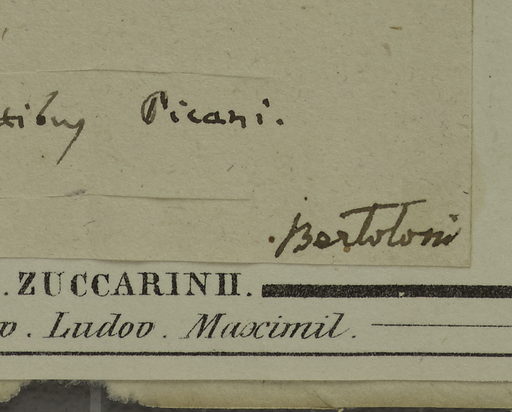 tibus Picani.
Bertoloni
. ZUCCARINII.
. Ludov. Maximil.